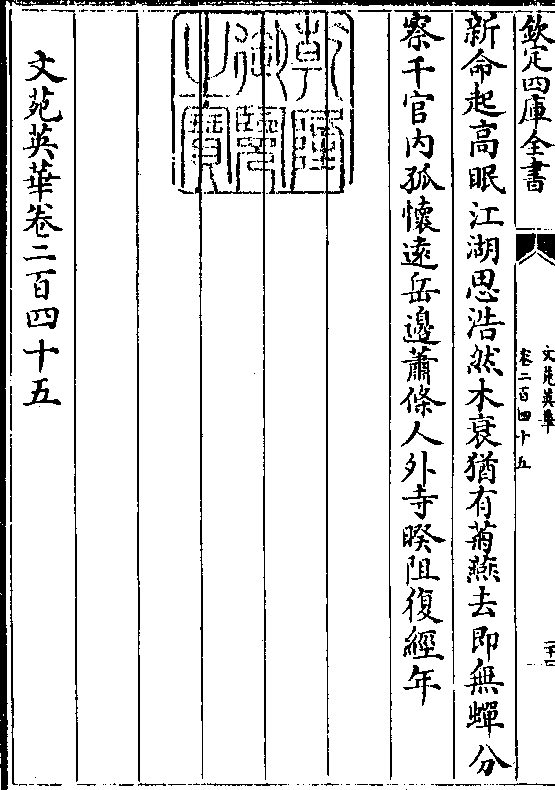 欽定四庫全書
文苑英華
卷二百四十五
新命起高眠江湖思浩然木衰猶有菊燕去即無蟬分
察千官内孤懷遠岳邊蕭條人外寺暌阻復經年
乾隆御覽之寶
文苑英華卷二百四十五